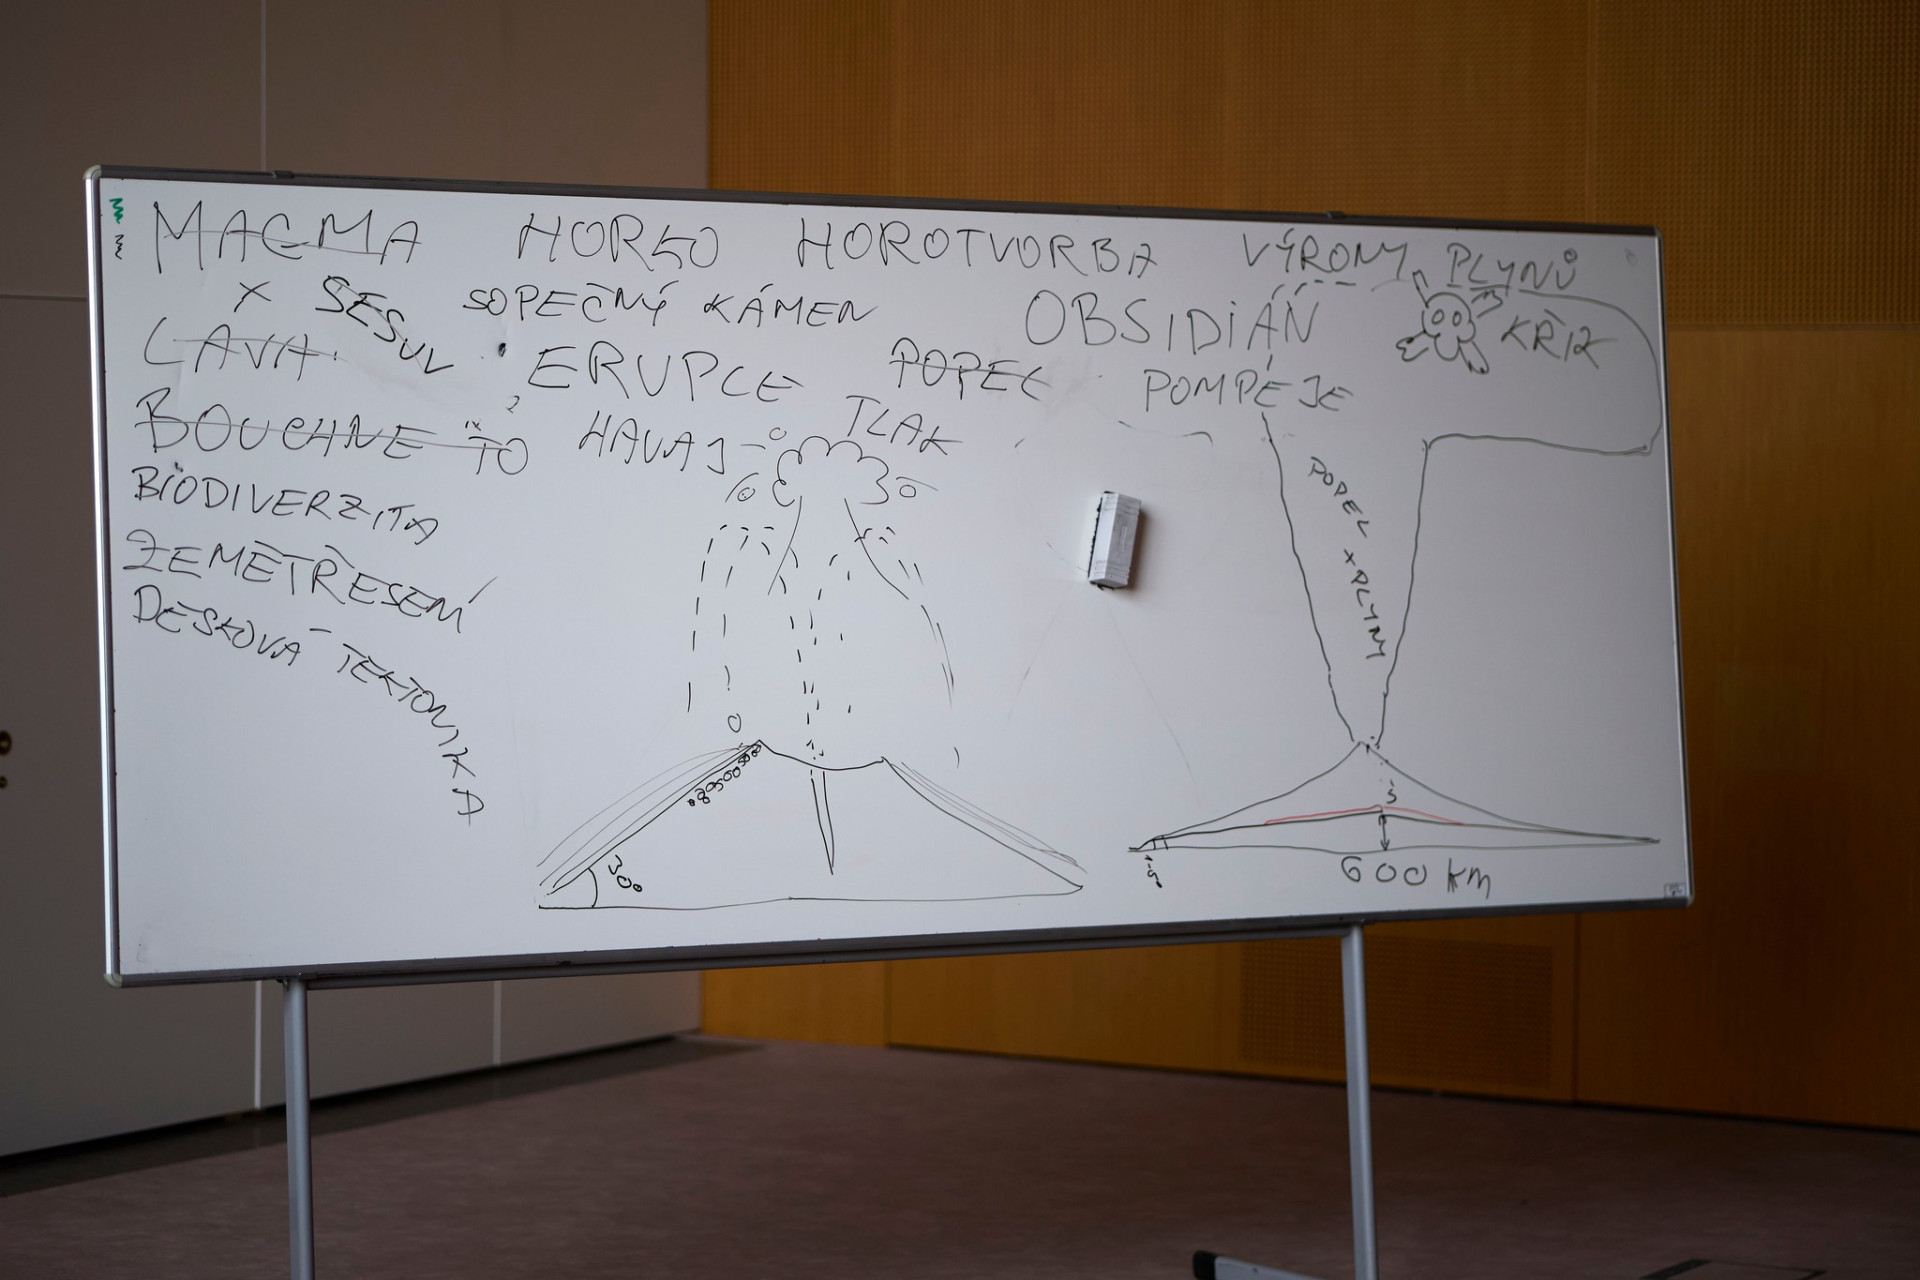 MAGMA HORKO HOROTVORBA VÝRONY PLYNŮ
X SESUV SOPEČNÝ KÁMEN OBSIDIÁN KŘIK
LÁVA ERUPCE POPEL POMPEJE
BOUCHNE TO HAVAJ TLAK
BIODIVERZITA
ZEMĚTŘESENÍ
DESKOVÁ TEKTONIKA
POPEL X PLYNY
30°
600 km